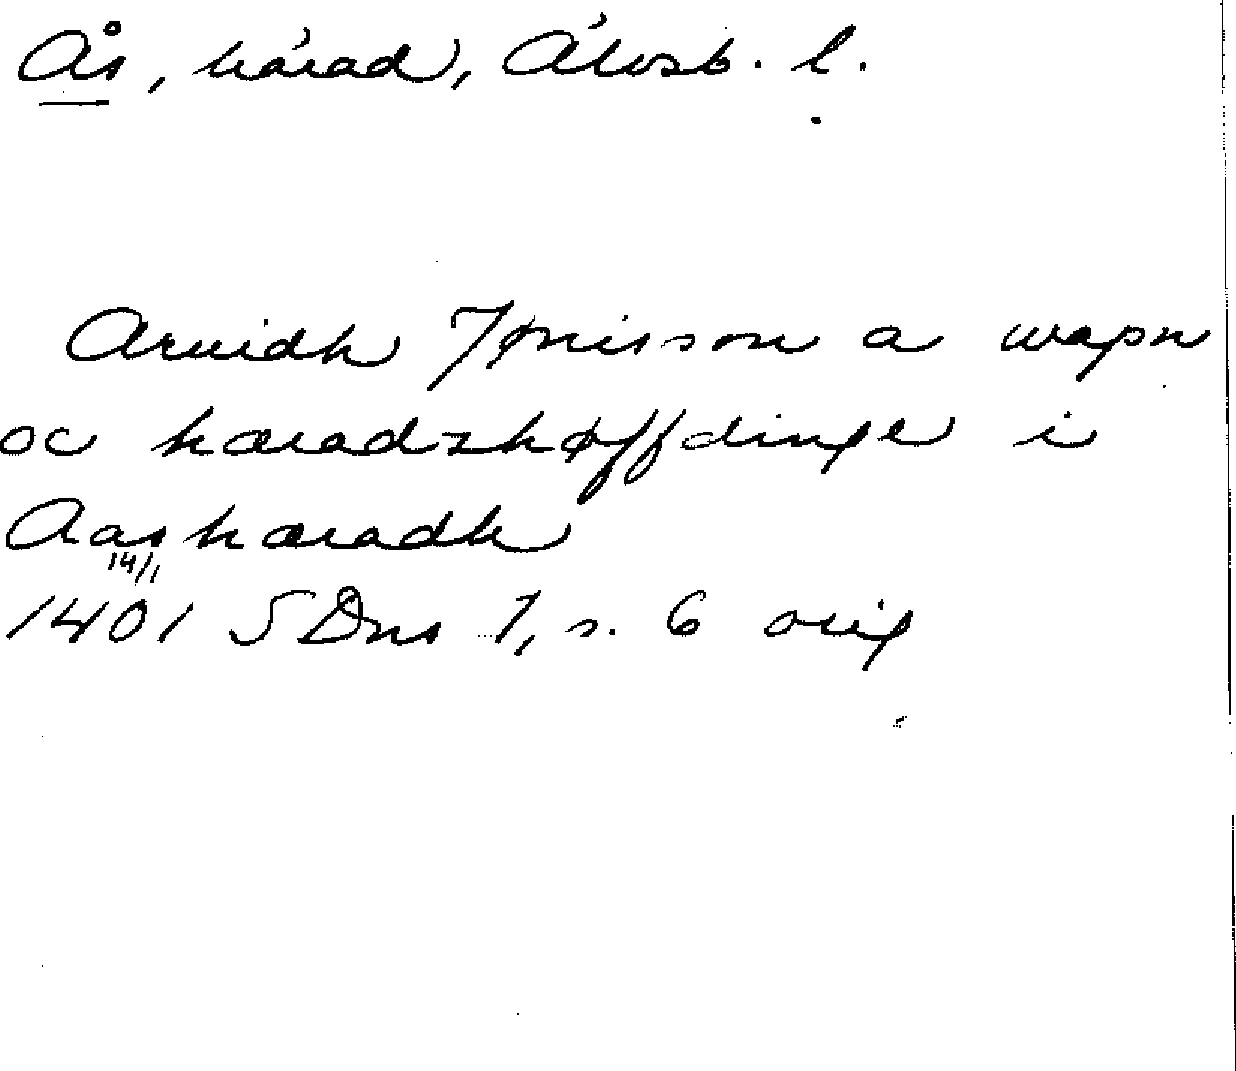 Ås, härad, Älvsb. l.
Aruidh Jønisson a wapn
oc hæradzhøffdinge i
Aashæradh
14/1
1401 SDns 1, s. 6 orig